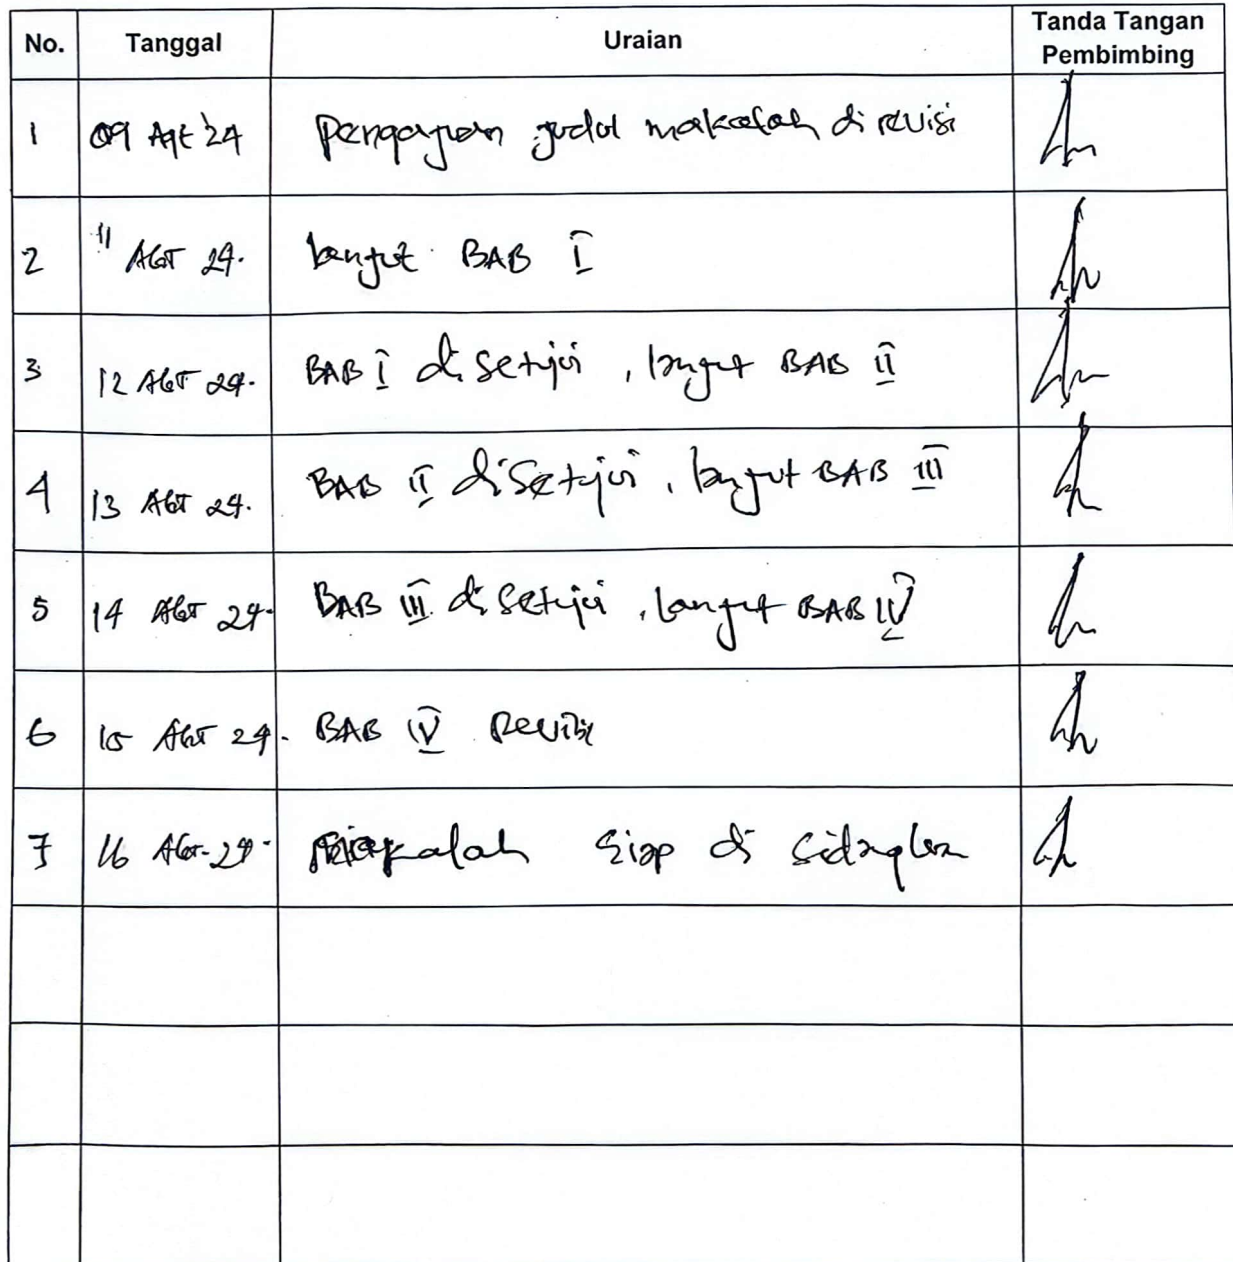 No. Tanggal Uraian Tanda Tangan Pembimbing
1 09 Agt '24 Pengajuan judul makalah di revisi
2 11 AGT 24. lanjut BAB I
3 12 AGT 24. BAB I di setujui, lanjut BAB II
4 13 AGT 24. BAB II di setujui, lanjut BAB III
5 14 AGT 24. BAB III di setujui, lanjut BAB IV
6 15 AGT 24. BAB IV Revisi
7 16 AGT-24. Makalah siap di sidangkan